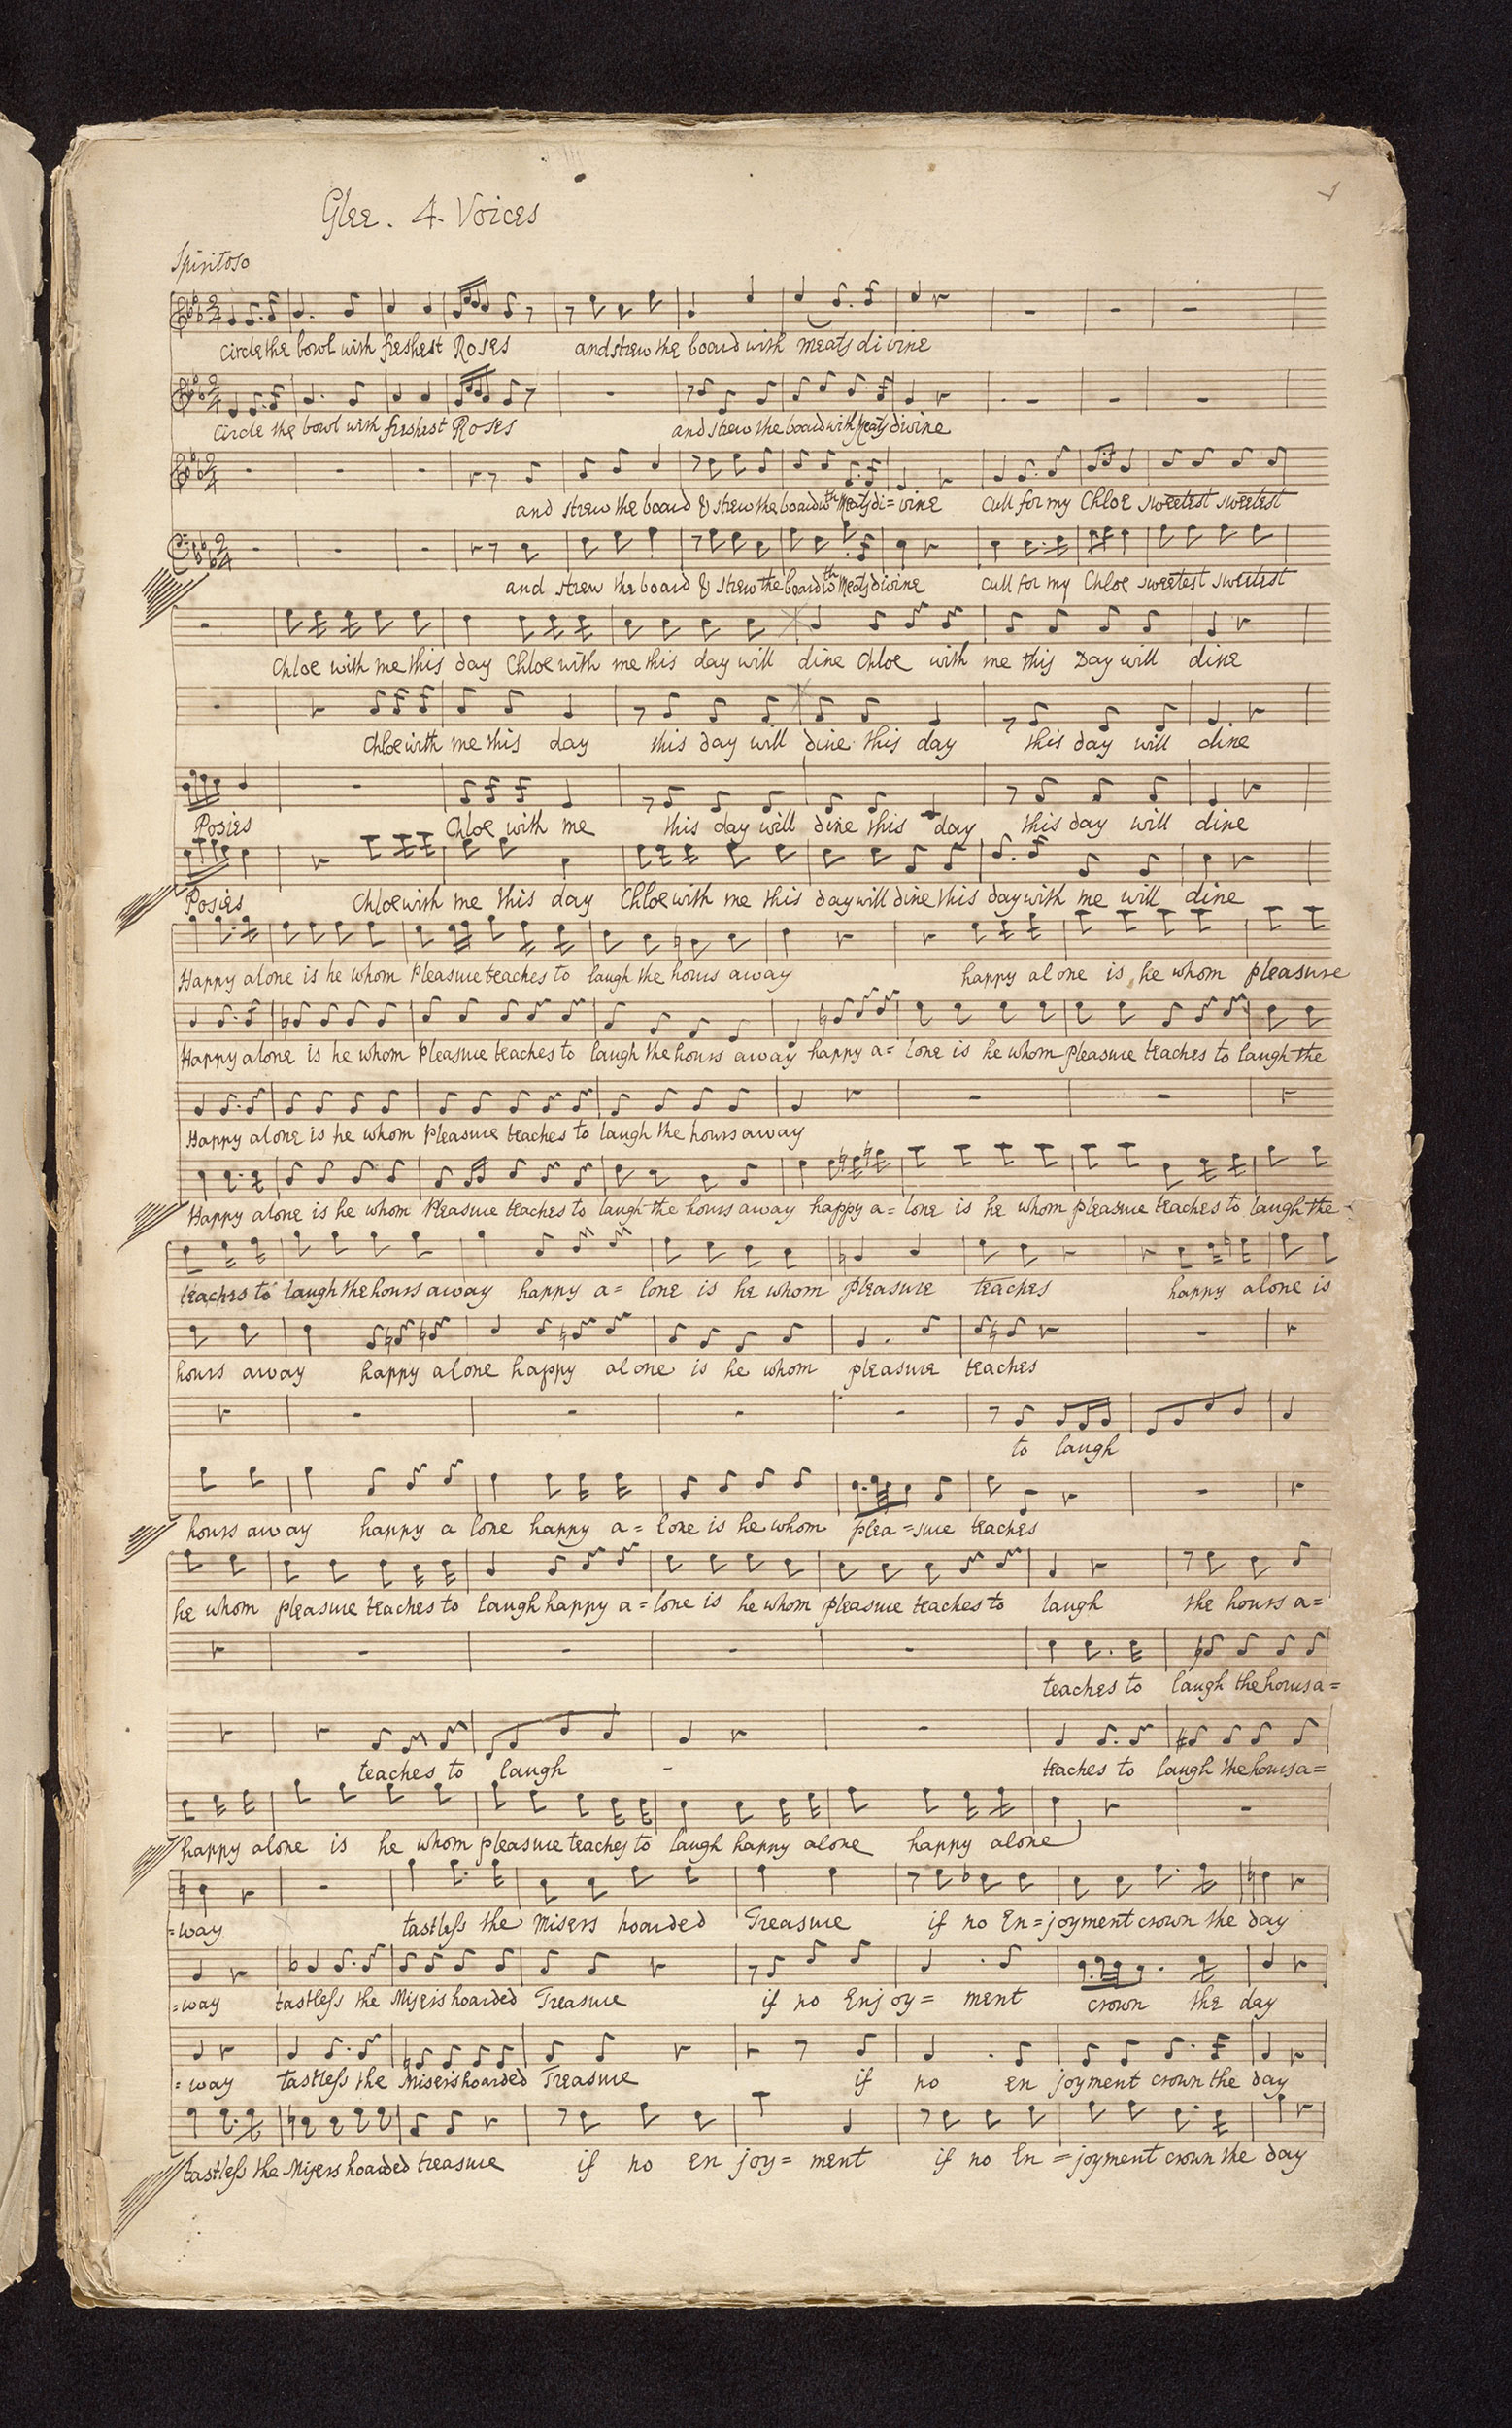 1
Glee. 4. Voices
Spiritoso
Circle the bowl with freshest Roses and strew the board with meats di vine
Circle the bowl with freshest Roses and strew the board with Meats divine
and strew the board & strew the board wth Meats di= vine Cull for my Chloe sweetest sweetest
and strew the board & strew the board wth Meats divine Cull for my Chloe sweetest sweetest
Chloe with me this day Chloe with me this day will dine Chloe with me this Day will dine
Chloe with me this day this day will dine this day this day will dine
Posies Chloe with me this day will dine this day this day will dine
Posies Chloe with me this day Chloe with me this day will dine this day with me will dine
Happy alone is he whom Pleasure teaches to laugh the hours away happy alone is he whom pleasure
Happy alone is he whom Pleasure teaches to laugh the hours away happy a= lone is he whom pleasure teaches to laugh the
Happy alone is he whom Pleasure teaches to laugh the hours away
Happy alone is he whom Pleasure teaches to laugh the hours away happy a= lone is he whom pleasure teaches to laugh the
teaches to laugh the hours away happy a= lone is he whom pleasure teaches happy alone is
hours away happy alone happy alone is he whom pleasure teaches
to laugh
hours away happy a lone happy a= lone is he whom plea=sure teaches
he whom pleasure teaches to laugh happy a=lone is he whom pleasure teaches to laugh the hours a=
teaches to laugh the hours a=
teaches to laugh - teaches to laugh the hours a=
happy alone is he whom pleasure teaches to laugh happy alone happy alone
=way tastless the Misers hoarded Treasure if no En=joyment crown the day
=way tastless the Misers hoarded Treasure if no Enjoy= ment crown the day
=way tastless the Misers hoarded Treasure if no en joyment crown the day
tastless the Misers hoarded treasure if no en joy= ment if no En =joyment crown the day